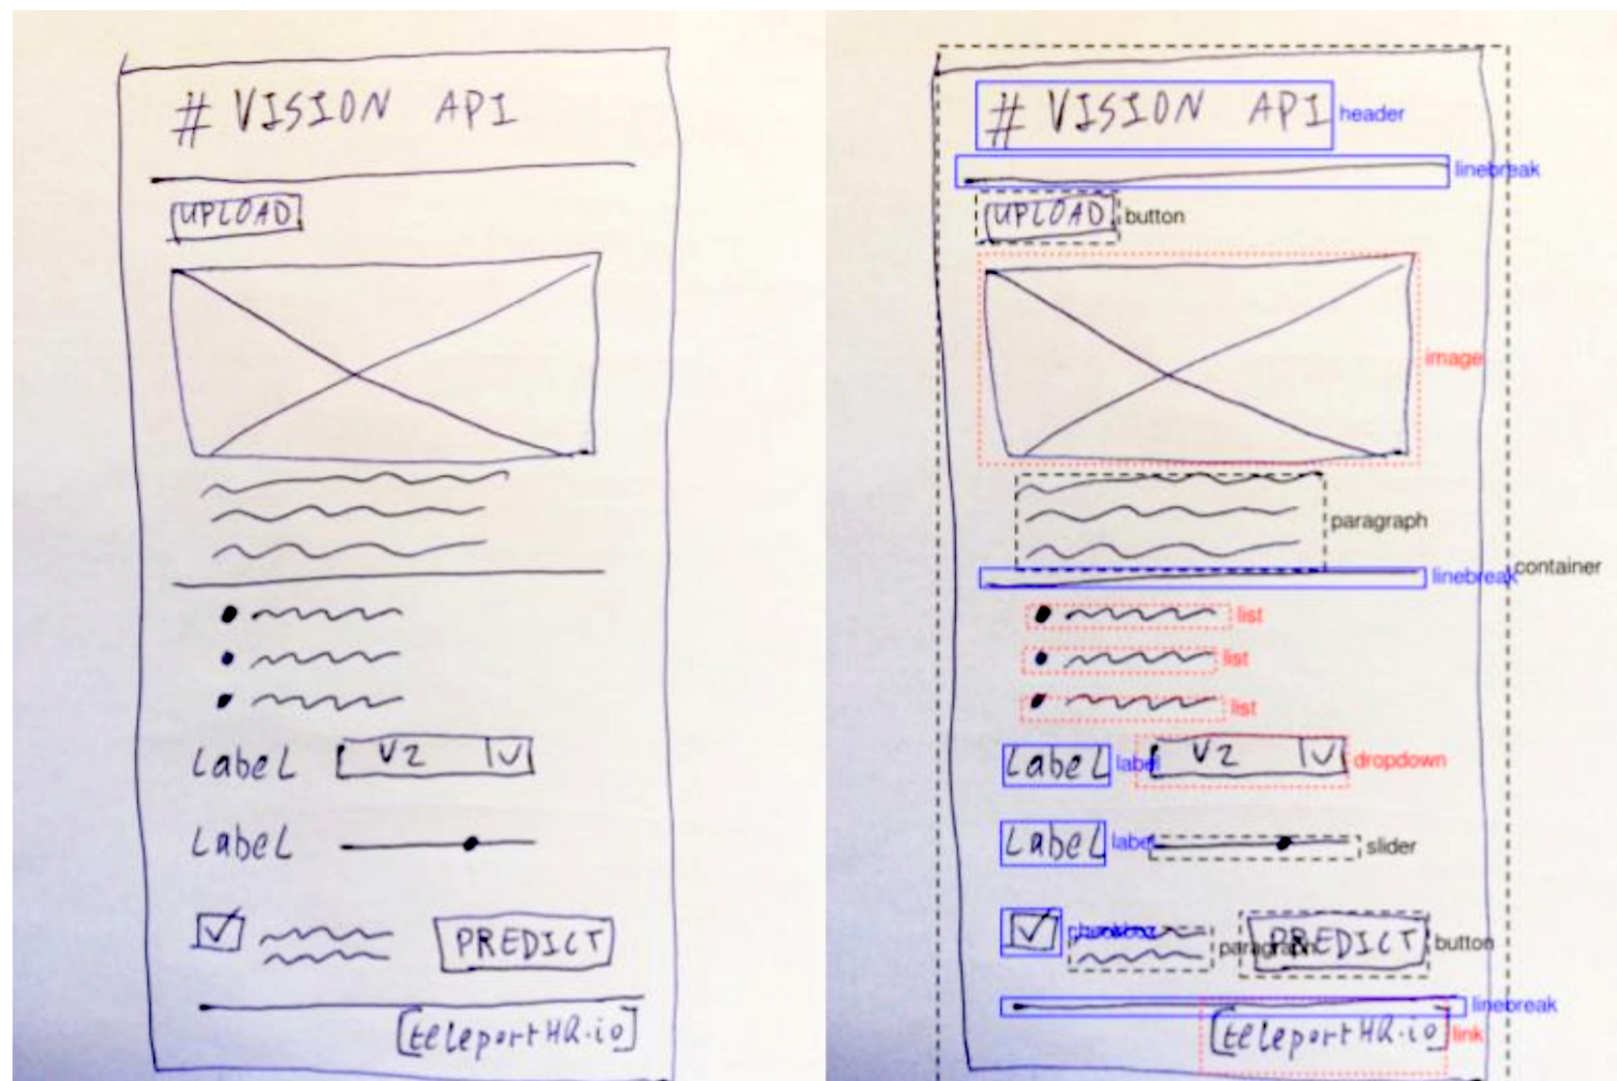 # VISION API
UPLOAD
Label V2
Label
PREDICT
[teleportHQ.io]
# VISION API header
linebreak
UPLOAD button
image
paragraph
linebreak container
list
list
list
Label label V2 dropdown
Label label slider
checkbox paragraph PREDICT button
linebreak
[teleportHQ.io] link